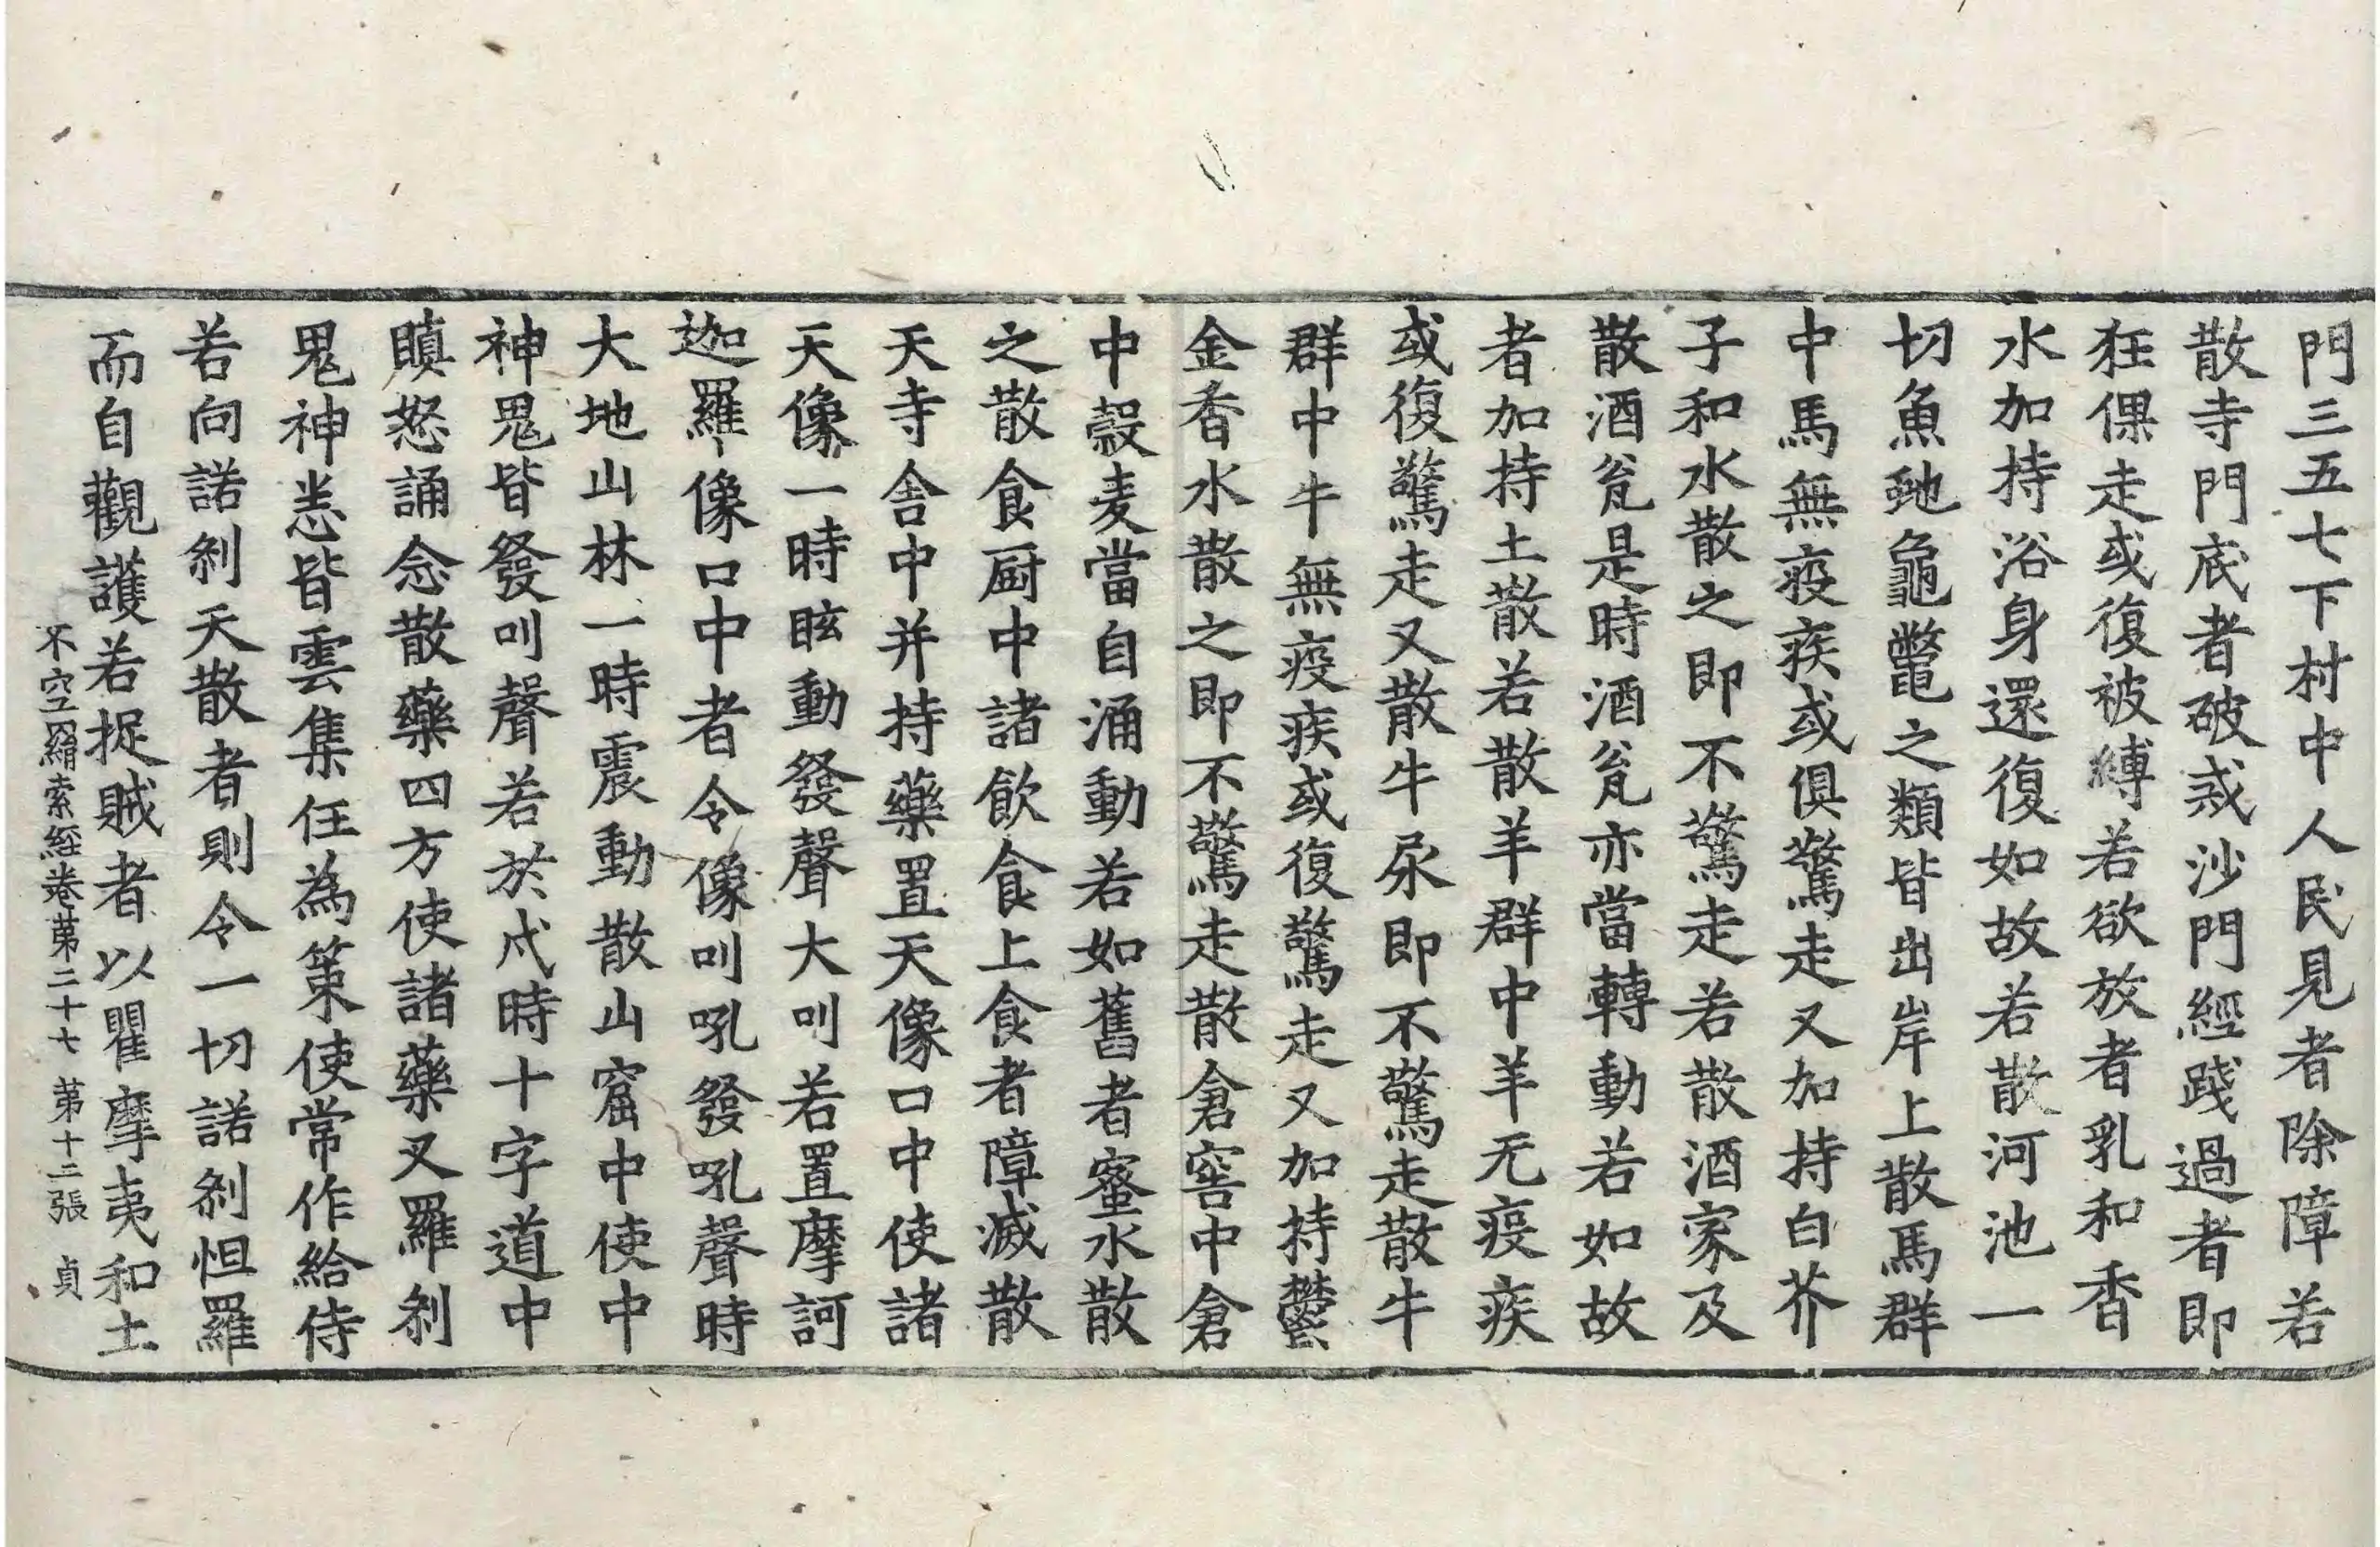 門三五七下村中人民見者除障若
散寺門底者破戒沙門經踐過者即
狂倮走或復被縛若欲放者乳和香
水加持浴身還復如故若散河池一
切魚虵龜鼈之類皆出岸上散馬群
中馬無疫疾或俱驚走又加持白芥
子和水散之即不驚走若散酒家及
散酒瓮是時酒瓮亦當轉動若如故
者加持土散若散羊群中羊无疫疾
或復驚走又散牛尿即不驚走散牛
群中牛無疫疾或復驚走又加持鬱
金香水散之即不驚走散倉窖中倉
中縠麦當自涌動若如舊者蜜水散
之散食厨中諸飲食上食者障滅散
天寺舍中并持藥置天像口中使諸
天像一時眩動發聲大叫若置摩訶
迦羅像口中者令像叫吼發吼聲時
大地山林一時震動散山窟中使中
神鬼皆發叫聲若於戌時十字道中
瞋怒誦念散藥四方使諸藥叉羅刹
鬼神悉皆雲集任為策使常作給侍
若向諾刹天散者則令一切諾刹怛羅
而自觀護若捉賊者以瞿摩夷和土
不空羂索經卷苐二十七 苐十二張 貞